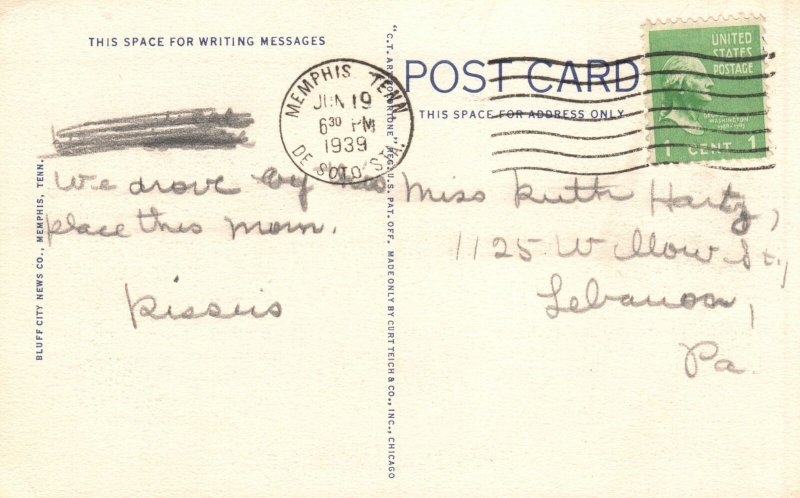 THIS SPACE FOR WRITING MESSAGES
We drove by
place this morn.
Kisses
BLUFF CITY NEWS CO., MEMPHIS, TENN.
MEMPHIS TENN.
JUN 19
630 PM
1939
DE SOTO STA.
"C.T. ART-COLORTONE" REG. U.S. PAT. OFF. MADE ONLY BY CURT TEICH & CO., INC., CHICAGO
POST CARD
THIS SPACE FOR ADDRESS ONLY
UNITED
STATES
POSTAGE
GEORGE
WASHINGTON
1789-1797
1 CENT 1
Miss Ruth Hartz,
1125 Willow St.,
Lebanon,
Pa.